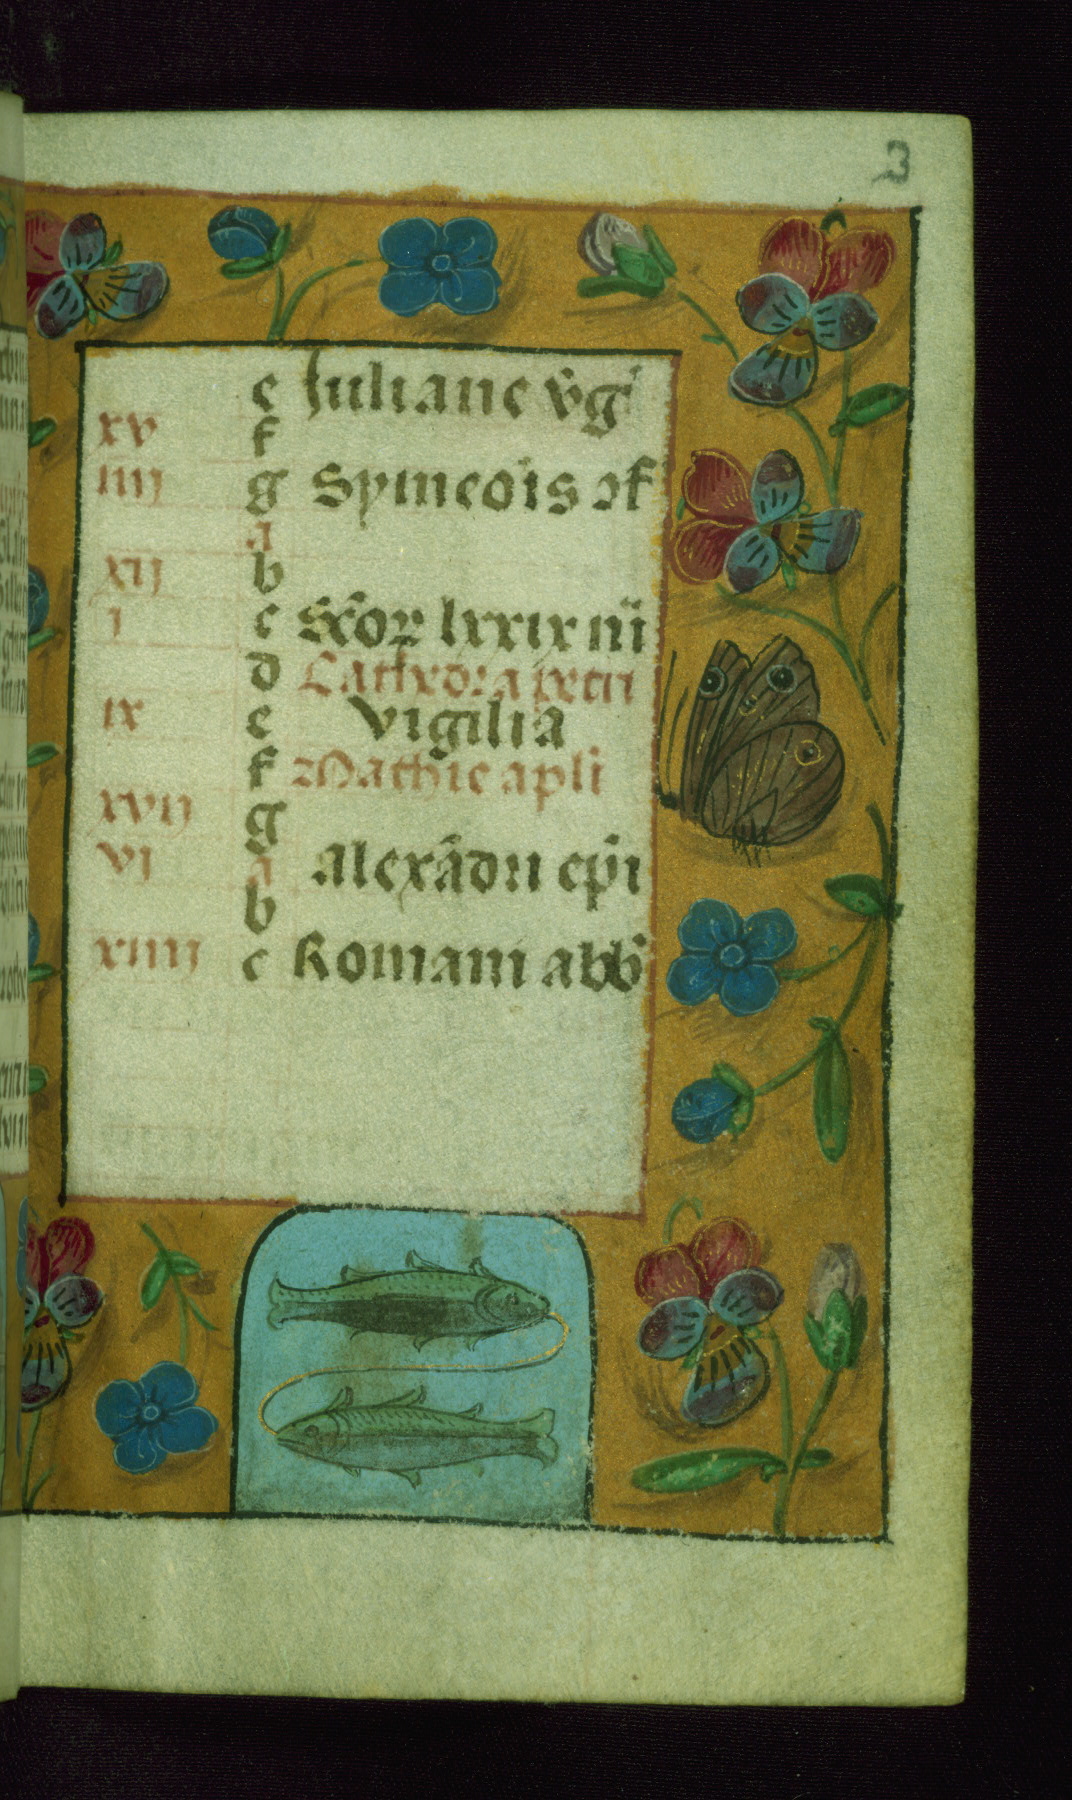 3
e Iuliane v̄g
xv f
iiij g Symeōis ↄf
a
xij b
i c Sc̄oꝝ lxxix m̄
d Cathedra petri
ix e vigilia
f Mathie apl̄i
xvij g
vi a alexādri ep̄i
b
xiiij c Romani abb̄